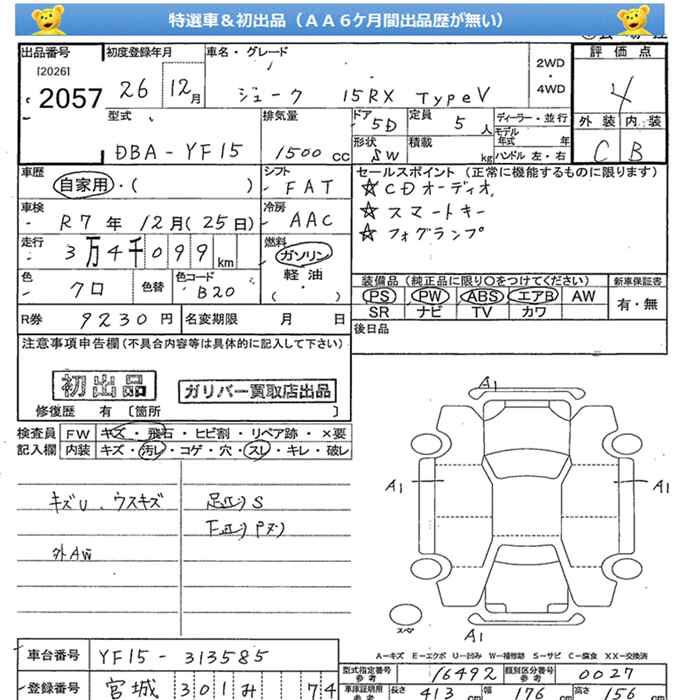 特選車＆初出品（ＡＡ６ケ月間出品歴が無い）
出品番号
[2026]
2057
初度登録年月
26 12月
車名・グレード
ジューク 15RX TypeV
2WD・4WD
評価点
4
外装 内装
C B
型式
DBA-YF15
排気量
1500cc
ドア
5D
定員
5人
形状
SW
積載
kg
ディーラー・並行
モデル年式 年
ハンドル 左・右
車歴
自家用・( )
シフト
FAT
車検
R7年 12月(25日)
冷房
AAC
走行
3万4千099km
燃料
ガソリン
軽油
( )
色
クロ
色替
色コード
B20
R券 9230円
名変期限 月 日
セールスポイント (正常に機能するものに限ります)
☆CDオーディオ
☆スマートキー
☆フォグランプ
装備品 (純正品に限り○をつけてください)
PS PW ABS エアB AW
SR ナビ TV カワ
新車保証書
有・無
後日品
注意事項申告欄(不具合内容等は具体的に記入して下さい)
初出品
ガリバー買取店出品
修復歴 有 〔箇所 〕
検査員記入欄
FW キズ・飛石・ヒビ割・リペア跡・×要
内装 キズ・汚レ・コゲ・穴・スレ・キレ・破レ
キズU、ウスキズ
外AW
足回りS
下回りPスリ
A1
A1
A1
A1
スペア
A－キズ E－エクボ U－凹み W－補修跡 S－サビ C－腐食 XX－交換済
車台番号 YF15-313585
登録番号 宮城 301 み 74
型式指定番号 参考 16492
類別区分番号 参考 0027
車庫証明用 参考
長さ 413cm 幅 176cm 高さ 156cm